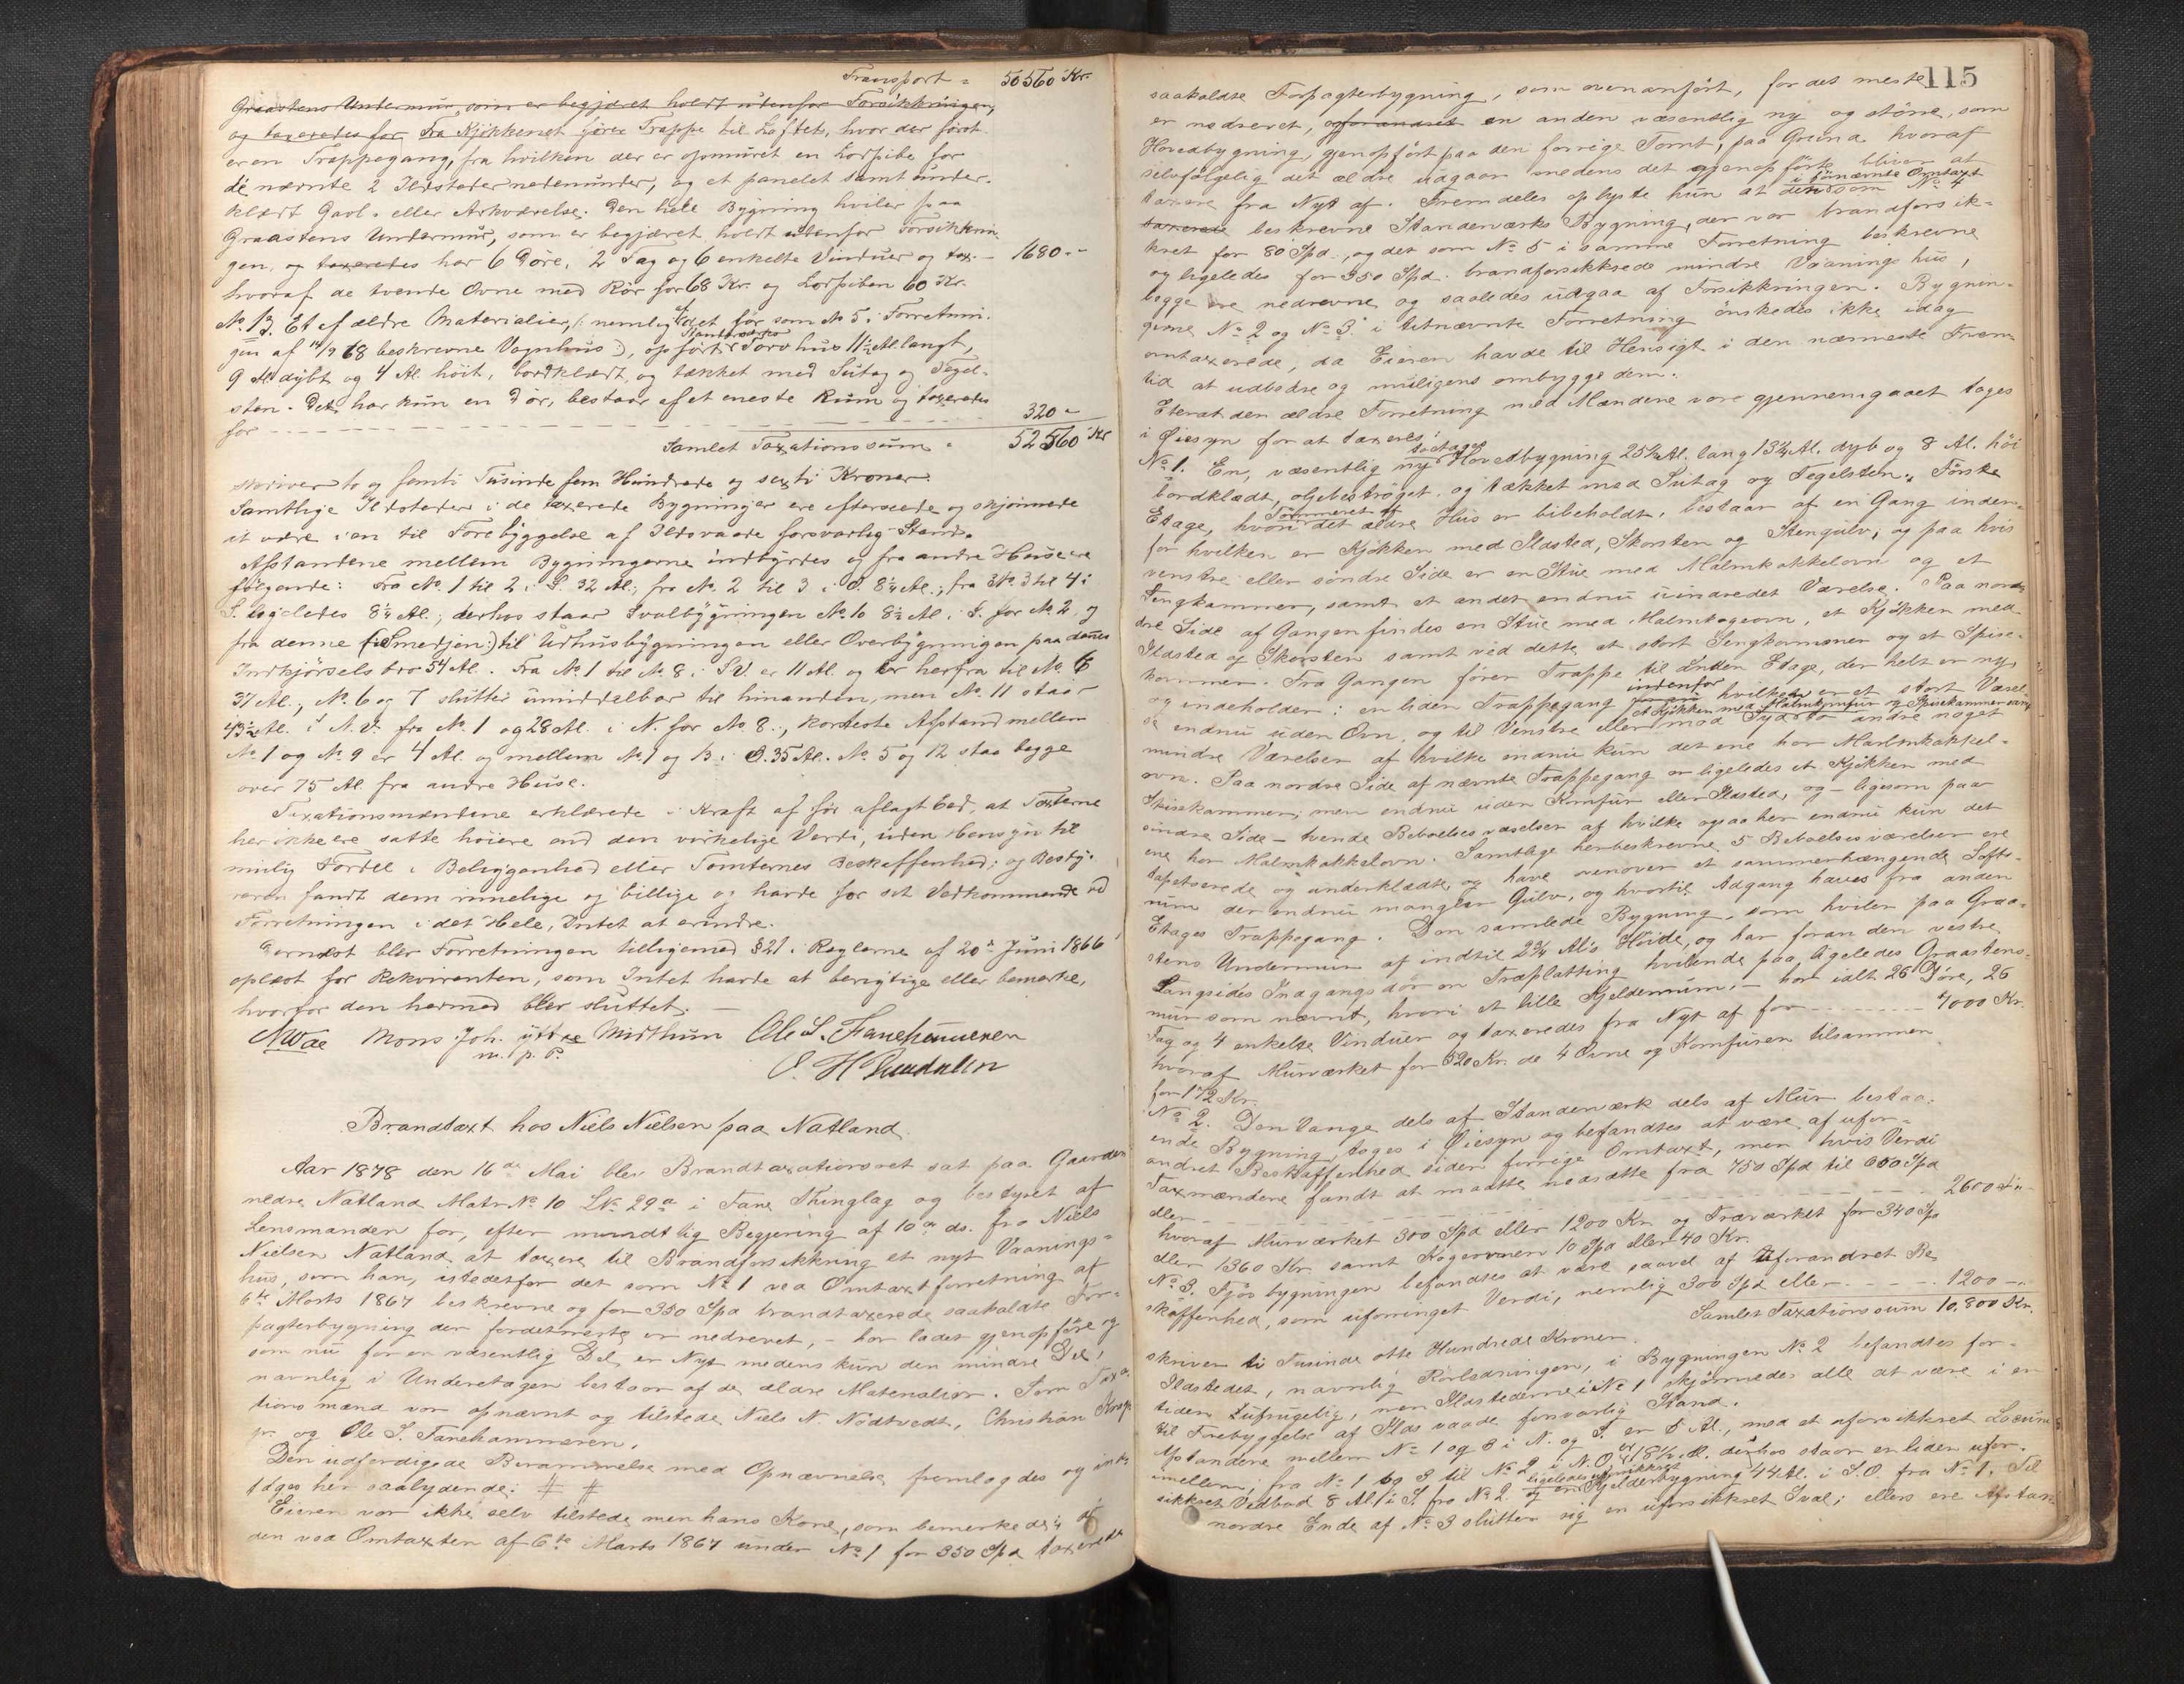 Transport = 50560 Kr.
Graastens Undermur, som er begjæret holdt udenfor Forsikkringen,
og taxeredes for Fra Kjøkkenet fører Trappe til Loftet, hvor der først
er en Trappegang, fra hvilken der er opmuret en Lorpibe for
de nævnte 2 Ildsteder nedenunder, og et panelet samt under-
klædt Gavl- eller Arkværelse. Den hele Bygning hviler paa
Graastens Undermur, som er begjæret holdt udenfor Forsikkrin-
gen, og taxeredes har 6 Döre, 2 Fag og 6 enkelte Vinduer og tax. - 1680 "-
hvoraf de tvende Ovne med Rör for 68 Kr. og Lorpiben 60 Kr.
No 13. Et af ældre Materialier, (: nemlig af det før som No 5 i Forretnin-
gen af 14/9 68 beskrevne Vognhus :), opført Standværks Torvhus 11½ Al. langt,
9 Al. dybt og 4 Al. høit, bordklædt, og tækket med Sutag og Tegel-
sten. Det har kun en Dör, bestaar af et eneste Rum og taxeredes
for 320 "
Samlet Taxationssum = 52560 Kr
skriver to og femti Tusinde fem Hundrede og sexti Kroner.
Samtlige Ildsteder i de taxerede Bygninger ere efterseede og skjønnede
at være i en til Forebyggelse af Ildsvaade forsvarlig Stand.
Afstandene mellem Bygningerne indbyrdes og fra andre Huse ere
følgende: Fra No. 1 til 2 i S. 32 Al., fra No. 2 til 3 i Ö. 8¼ Al., fra No. 3 til 4 i
S. ligeledes 8¼ Al.; derhos staar Svalbygningen No. 10 8½ Al. i S. for No 2, og
fra denne (: Smedjen :) til Udhusbygningen eller Overbygningen paa dennes
Indkjörselsbro 54 Al. Fra No. 1 til No. 8 i SV. er 11 Al. og er herfra til No. 6
37 Al., No. 6 og 7 slutter umiddelbar til hinanden, men No. 11 staar
43½ Al. i N.V. fra No. 1 og 28 Al. i N. for No 8., korteste Afstand mellem
No. 1 og No. 9 er 4 Al. og mellem No 1 og 13 i Ö. 35 Al. No. 5 og 12 staa begge
over 75 Al. fra andre Huse.
Taxationsmændene erklærede i Kraft af før aflagt Eed, at Taxterne
her ikke ere satte høiere end den virkelige Verdi, uden Hensyn til
mulig Fordel i Beliggenhed eller Tomternes Beskaffenhed; og Besty-
reren fandt dem rimelige og billige og havde for sit Vedkommende ved
Forretningen i det Hele, Intet at erindre.
Dernæst blev Forretningen tilligemed § 21 i Reglerne af 20de Juni 1866
oplæst for Rekvirenten, som Intet havde at berigtige eller bemærke,
hvorfor den hermed blev sluttet. —
Mons Joh. yttre Midthun Ole S. Fanehammeren
m. p. P.
Brandtaxt hos Niels Nielsen paa Natland.
Aar 1878 den 16de Mai blev Brandtaxationsret sat paa Gaarden
nedre Natland Matr No 10 L No 29a i Fane Thinglag og bestyret af
Lensmanden for, efter mundtlig Begjering af 10de ds. fra Niels
Nielsen Natland at taxere til Brandforsikkring et nyt Vaanings-
hus, som han, istedetfor det som No 1 ved Omtaxtforretning af
6te Marts 1867 beskrevne og for 350 Spd brandtaxerede saakaldte For-
pagterbygning der fordetmeste er nedrevet, - har ladet gjenopføre og
som nu for en væsentlig Del er Nyt medens kun den mindre Del,
navnlig i Underetagen bestaar af de ældre Materialier. Som Taxa-
tionsmænd var opnævnt og tilstede Niels N. Nødtvedt, Christian Krog
jr. og Ole S. Fanehammeren.
Den udfærdigede Berammelse med Opnævnelse fremlagdes og ind-
tages her saalydende: # #
Eieren var ikke selv tilstede men hans Kone, som bemerkede, at
den ved Omtaxten af 6te Marts 1867 under No 1 for 350 Spd taxerede
115
saakaldte Forpagterbygning, som ovenanført, for det meste
er nedrevet, og forandret en anden væsentlig ny og större, som
Hovedbygning, gjenopført paa den forrige Tomt, paa Grund hvoraf
selvfølgelig det ældre udgaar medens det gjenopførte bliver at
taxere fra Nyt af. Fremdeles oplyste hun at den i förnævnte Omtaxt som No 4
taxerede beskrevne Standværks Bygning, der var brandforsik-
kret for 80 Spd., og det som No 5 i samme Forretning beskrevne
og ligeledes for 350 Spd. brandforsikkrede mindre Vaaningshus,
begge ere nedrevne og saaledes udgaa af Forsikkringen. Bygnin-
gerne No 2 og No 3 i sidstnævnte Forretning ønskedes ikke idag
omtaxerede, da Eieren havde til Hensigt i den nærmeste Frem-
tid at udbedre og muligens ombygge dem.
Efterat den ældre Forretning med Mændene vare gjennemgaaet toges
i Öiesyn for at taxeres:
No 1. En, væsentlig ny toetages Hovedbygning 25½ Al. lang 13¼ Al. dyb og 8 Al. høi
bordklædt, oljebestrøget, og tækket med Sutag og Tegelsten. Förste
Etage, hvori Tømmeret af det ældre Hus er bibeholdt, bestaar af en Gang inden-
for hvilken er Kjøkken med Ildsted, Skorsten og Stengulv, og paa hvis
venstre eller søndre Side er en Stue med Malmkakkelovn og et
Sengkammer, samt et andet endnu uindredet Værelse. Paa nor-
dre Side af Gangen findes en Stue med Malmkogeovn, et Kjøkken med
Ildsted og Skorsten samt ved dette, et stort Sengkammer og et Spise-
kammer. Fra Gangen fører Trappe til Anden Etage, der helt er ny,
og indeholder: en liden Trappegang indenfor hvilken er et stort Værel-
se endnu uden Ovn, og til Venstre eller mod Syd et Kjøkken med Malmkomfur og Spisekammer samt to andre noget
mindre Værelser af hvilke endnu kun det ene har Malmkakkel-
ovn. Paa nordre Side af nævnte Trappegang er ligeledes et Kjøkken med
Spisekammer, men endnu uden Komfur eller Ildsted, og - ligesom paa
søndre Side - tvende Beboelsesværelser af hvilke ogsaa her endnu kun det
ene har Malmkakkelovn. Samtlige herbeskrevne 5 Beboelsesværelser ere
tapetserede og underklædte og have ovenover et sammenhængende Lofts-
rum der endnu mangler Gulv, og hvortil Adgang haves fra anden
Etages Trappegang. Den samlede Bygning, som hviler paa Graa-
stens Undermur af indtil 2¾ Al's Höide, og har foran den vestre
Langsides Indgangsdör en Træplatting hvilende paa ligeledes Graastens-
mur som nævnt, hvori et lille Kjelderrum, - har ialt 26 Döre, 26
Fag og 4 enkelte Vinduer og taxeredes fra Nyt af for 7000 Kr.
hvoraf Murværket for 520 Kr. de 4 Ovne og Komfuren tilsammen
for 172 Kr.
No 2. Den lange dels af Standerværk dels af Mur bestaa-
ende Bygning, toges i Öiesyn og befandtes at være af ufor-
andret Beskaffenhed siden forrige Omtaxt, men hvis Verdi
Taxmændene fandt at maatte nedsætte fra 750 Spd til 650 Spd
eller 2600 "
hvoraf Murværket 300 Spd eller 1200 Kr. og Træværket for 340 Spd
eller 1360 Kr. samt Kogeovnen 10 Spd eller 40 Kr.
No 3. Fjøsbygningen befandtes at være saavel af uforandret Be-
skaffenhed, som uforringet Verdi, nemlig 300 Spd eller 1200 - "
Samlet Taxationssum 10,800 Kr.
skriver ti Tusinde otte Hundrede Kroner.
Ildstedet, navnlig Rørledningen, i Bygningen No 2 befandtes for-
tiden ufrugelig, men Ildstederne i No 1 skjønnedes alle at være i en
til Forebyggelse af Ildsvaade forsvarlig Stand.
Afstandene mellem No 1 og 3 i N. og S. er 8 Al., med et uforsikkret Locum
imellem, fra No 1 og 3 til No 2 i N.O. er 18½ Al. derhos staar en liden ufor-
sikkret Vedbod 8 Al i S. fra No 2 og en ligeledes uforsikkret Kjelderbygning 44 Al. i S.O. fra No 1. Til
nordre Ende af No 3 slutter sig en uforsikkret Sval; ellers ere Afstan-